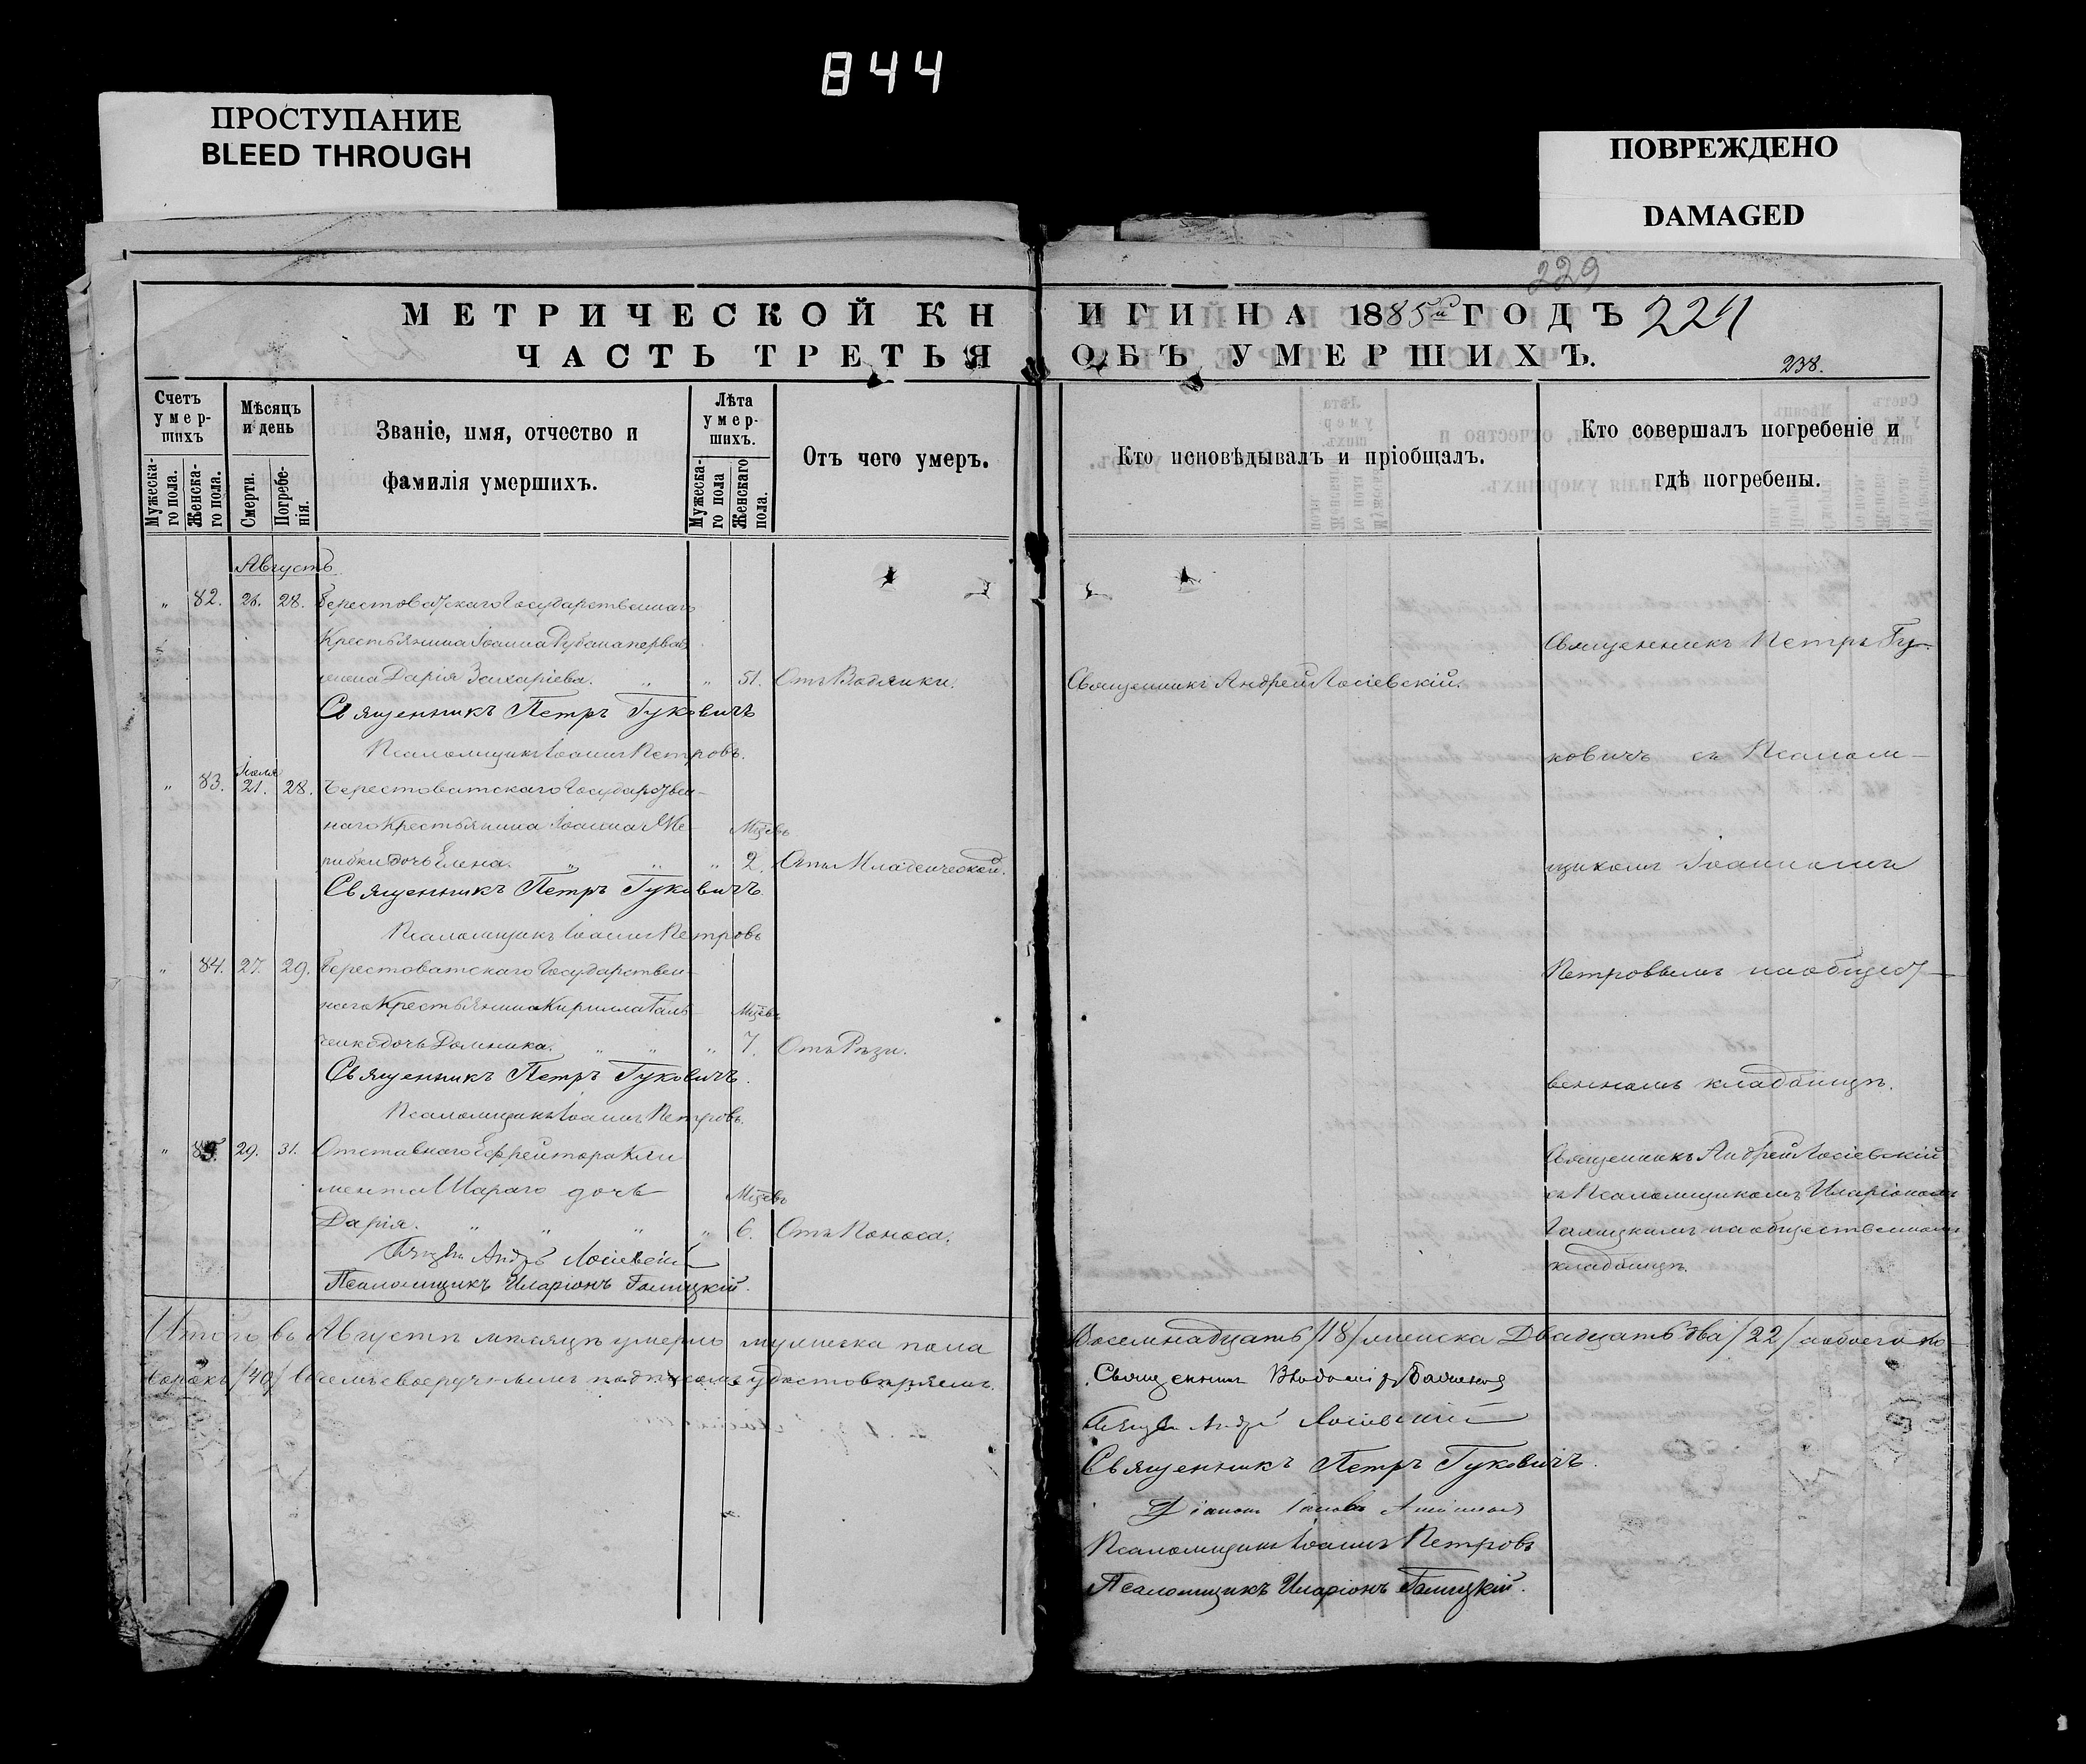 844
ПРОСТУПАНИЕ
BLEED THROUGH
ПОВРЕЖДЕНО
DAMAGED
229
МЕТРИЧЕСКОЙ КНИГИ НА 1885й ГОДЪ 224
ЧАСТЬ ТРЕТЬЯ ОБЪ УМЕРШИХЪ.
238.
Счетъ умер-шихъ
Мужеска-го пола.
Женска-го пола.
Мѣсяцъ и день
Смерти.
Погребе-нія.
Званіе, имя, отчество и
фамилія умершихъ.
Лѣта умер-шихъ.
Мужеска-го пола
Женскаго пола.
Отъ чего умеръ.
Кто исповѣдывалъ и пріобщалъ.
Кто совершалъ погребеніе и
гдѣ погребены.
Августъ
„ 82. 26. 28. Берестоватскаго Государственнаго
Крестьянина Іоанна Рубана первая
жена Дарія Захаріева. „ „ 51. Отъ Водянки. Священникъ Андрей Лосіевскій.
Священникъ Петръ Гуковичъ
Псаломщикъ Іоаннъ Петровъ.
Іюля
„ 83. 21. 28. Берестоватскаго Государствен-
наго Крестьянина Іоанна Же- Мцѣвъ
рибки дочь Елена. „ „ „ 2. Отъ Младенческой.
Священникъ Петръ Гуковичъ.
Псаломщикъ Іоаннъ Петровъ
„ 84. 27. 29. Берестоватскаго Государствен-
наго Крестьянина Кирилла Галь- Мцѣвъ
ченко дочь Домника. „ „ „ 7. Отъ Рѣзи.
Священникъ Петръ Гуковичъ.
Псаломщикъ Іоаннъ Петровъ.
„ 85. 29. 31. Отставнаго Ефрейтора Кли
мента Шараго дочь Мцѣвъ
Дарія. „ „ „ „ 6. Отъ Поноса.
Андр Лосіевскій
Псаломщикъ Иларіонъ Галицкій.
Священникъ Петръ Гу-
ковичъ съ Псалом-
щикомъ Іоанномъ
Петровымъ на общест-
венномъ кладбищѣ.
Священникъ Андрей Лосіевскій
съ Псаломщикомъ Иларіономъ
Галицкимъ на общественномъ
кладбищѣ.
Итого въ Августѣ мѣсяцѣ умерло мужеска пола Восемнадцать /18/ женска Двадцать два /22/ а обоего по-
сорокъ /40/ своеручнымъ подписомъ удостовѣряемъ.
Священникъ
Андрей Лосіевскій
Священникъ Петръ Гуковичъ.
Псаломщикъ Іоаннъ Петровъ
Псаломщикъ Иларіонъ Галицкій.